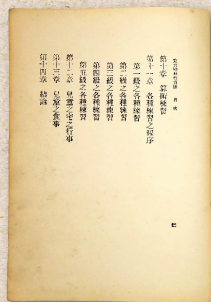 第十章　算術練習
第十一章　各種練習之程序
第一級之各種練習
第二級之各種練習
第三級之各種練習
第四級之各種練習
第五級之各種練習
第十二章　兒童之宅之行事
第十三章　兒童之食事
第十四章　結論